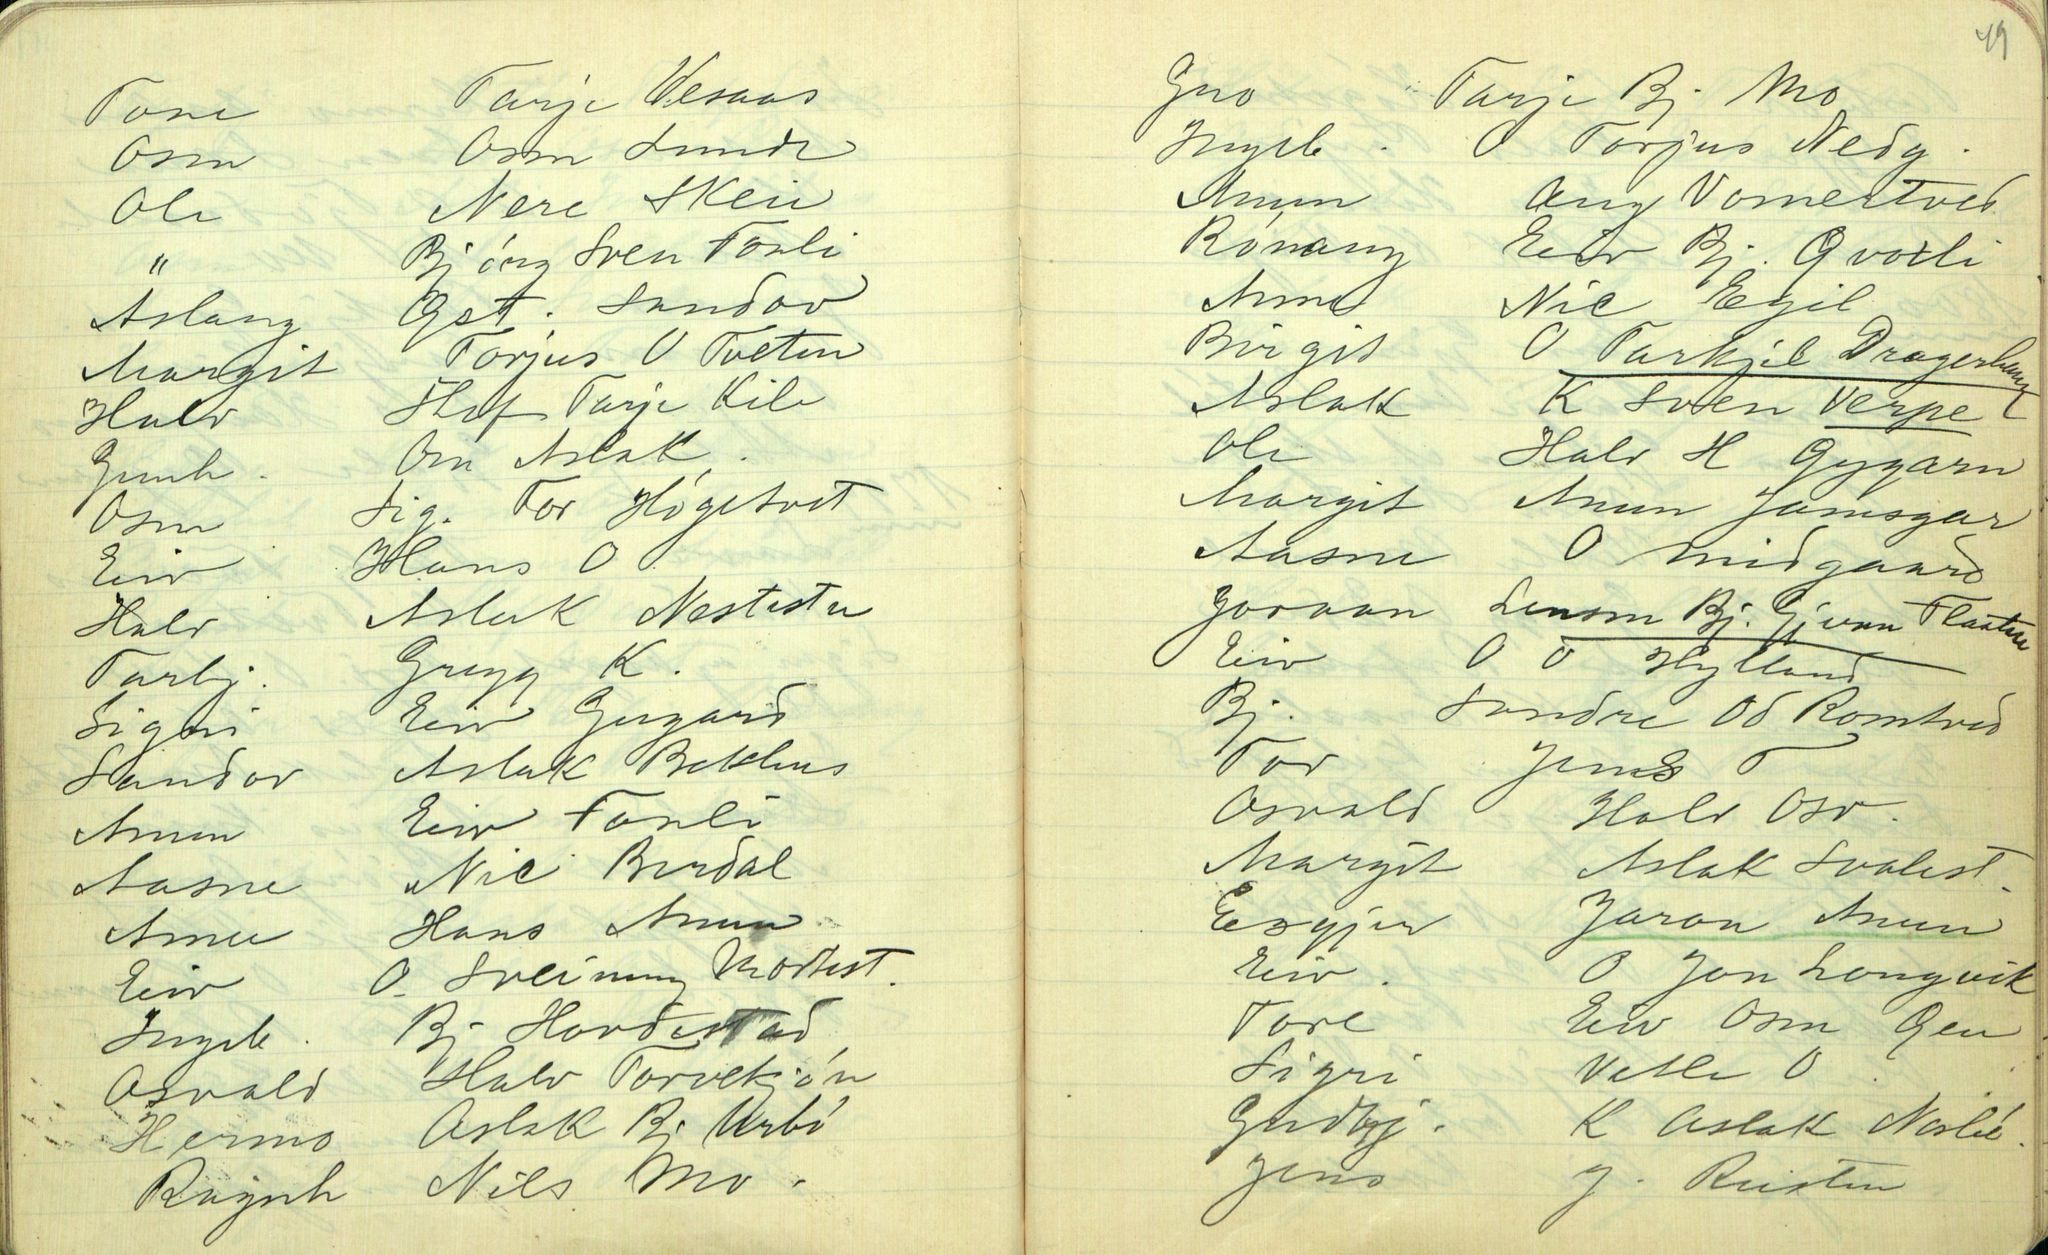 Tone Tarje Vesaas
Osm Osm Lunde
Ole Nere Skei
" Bjørg Sven Tonli
Aslaug Gst. Sandov
Margit Torjus O Tveten
Halv Stef Tarje Kile
Gunh. Osm Aslak.
Osm Sig. Tor Høgetvet
Eiv Hans O
Halv Aslak Nestestu
Tarbj. Gregg K.
Sigri Eiv Gugard
Sandov Aslak Bekkhus
Anun Eiv Tonli
Aasne Nic Berdal
Anne Hans Anun
Eiv O. Sveinung Modtest.
Ingeb. Bj Hordestad
Osvald Halv Torvetjøn
Hermo Aslak Bj Urbø
Ragnh Nils Mo.
49
Gro Tarje Bj. Mo
Ingeb. O Torjus Nedg.
Anun Ang Vomertved
Rónaug Eiv Bj. Qvaali
Anne Nic Egil
Birgit O Tarkjel Dragerhaug
Aslak K Sven Verpe
Ole Halv H Gygarn
Margit Anun Jamsgar
Aasne O Midgaard
Joraan Lensm Bj. Gjvan Flaaten
Eiv O O Hylland
Bj. Sondre Od Romtved
Tor Jens T
Osvald Halv Osv.
Margit Aslak Svalest.
Jaron Anun
Eiv. O Jon Longvik
Tore Eiv Osm Gen
Sigri Vetle O.
Gudbj. K Aslak Norbø.
Jens J. Reisten